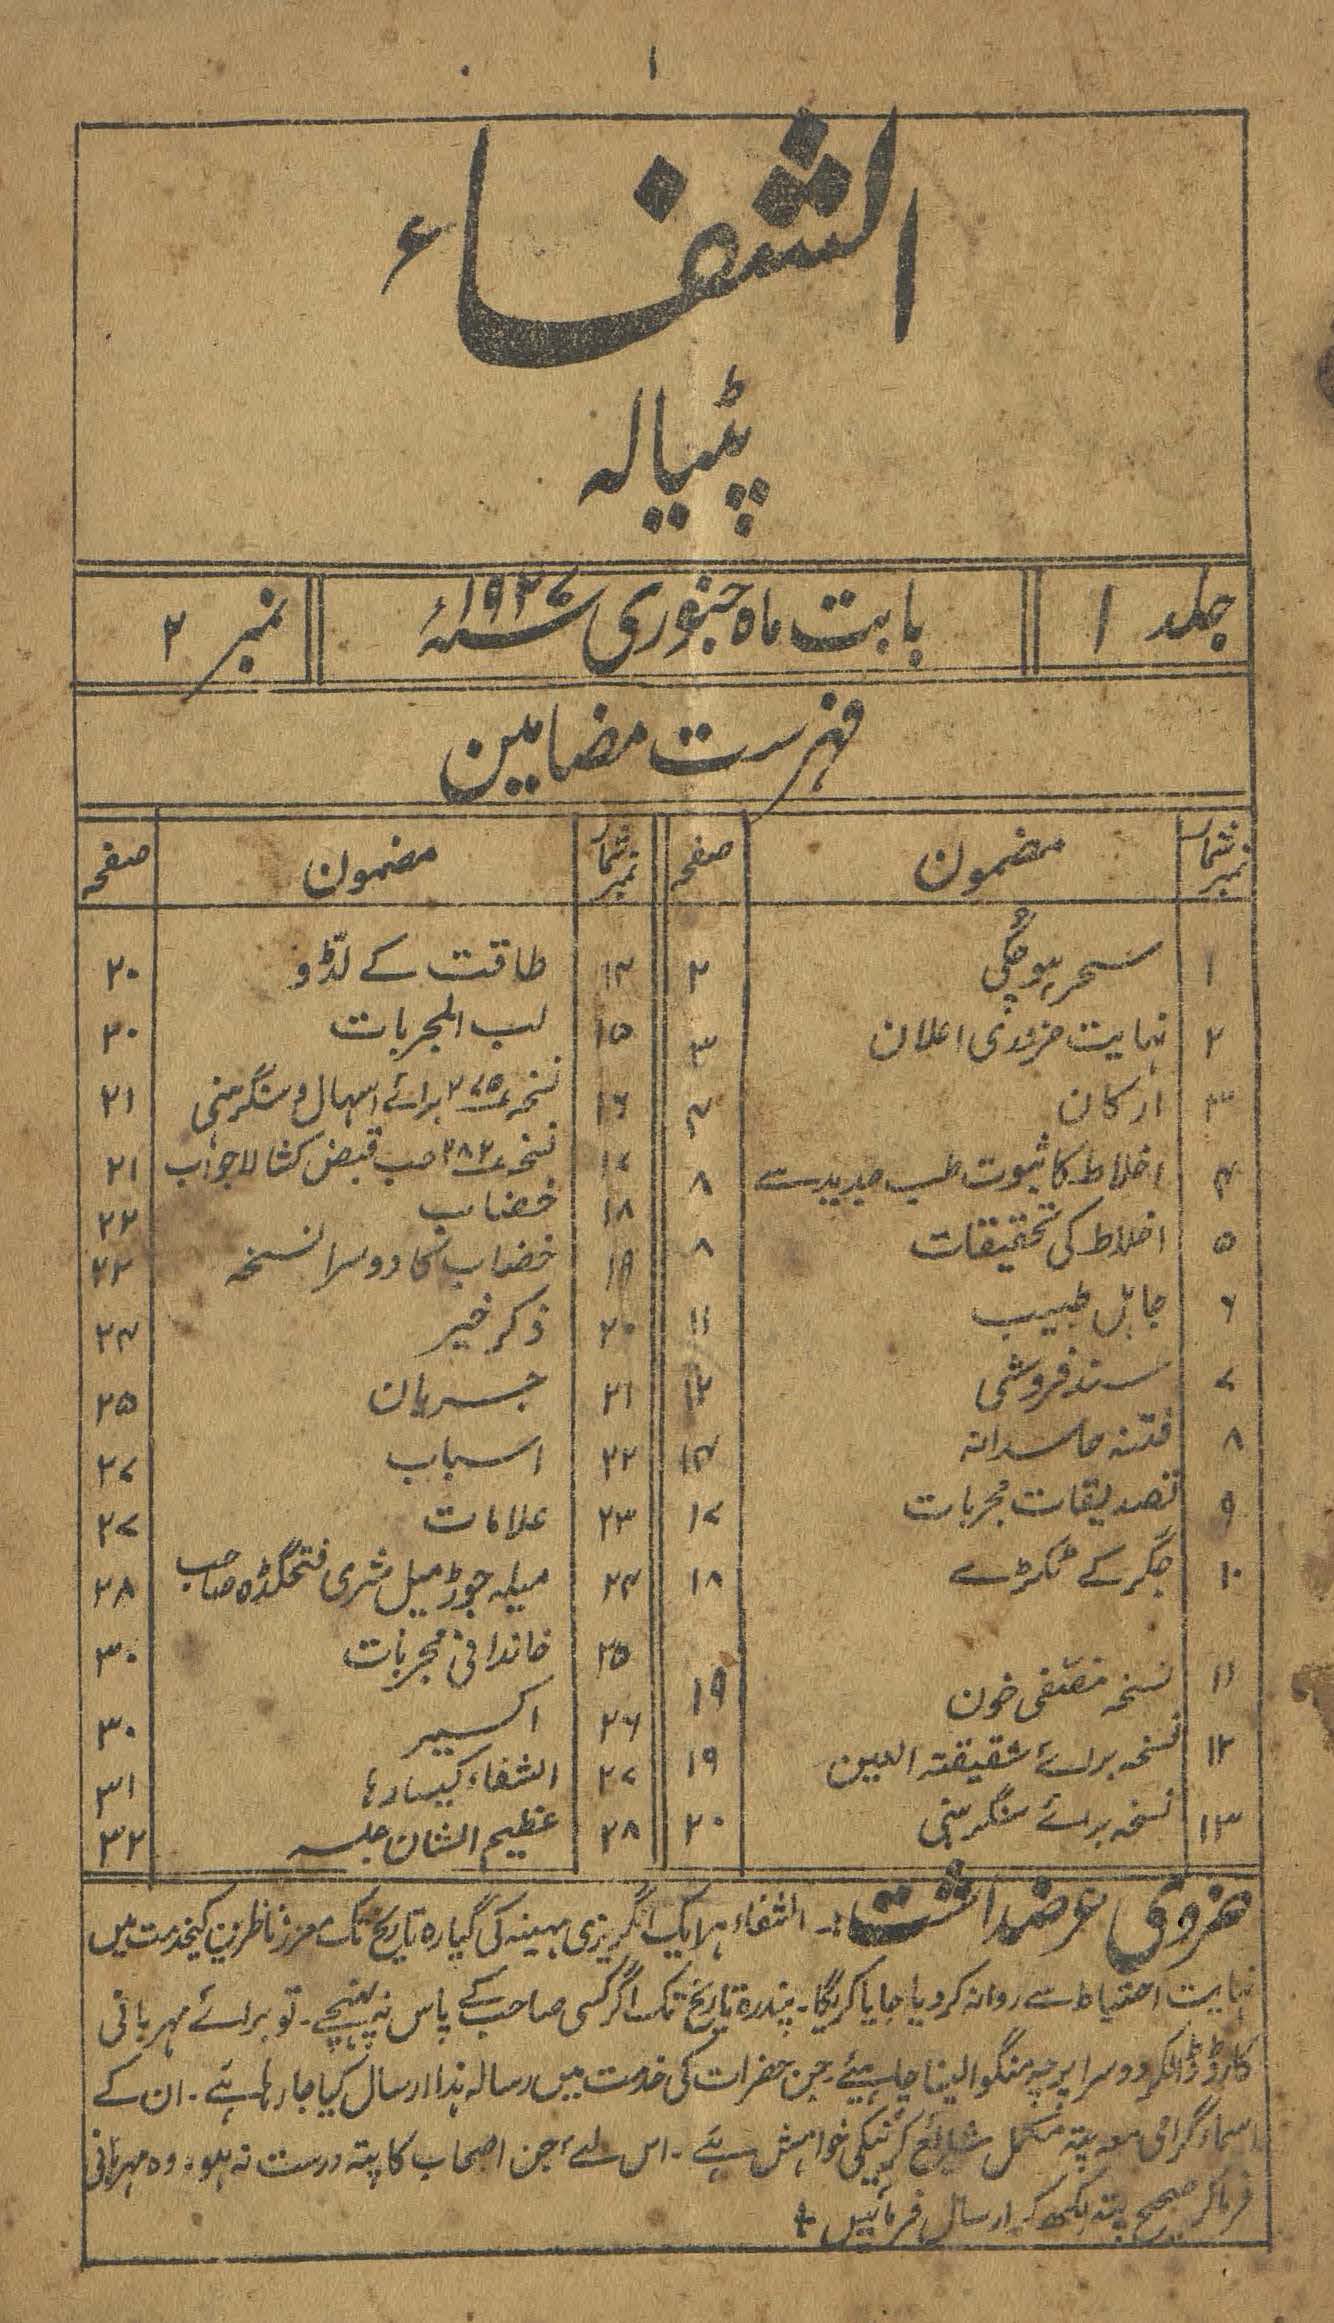 ۱
الشفاء
پٹیالہ
جلد ۱ بابت ماہ جنوری سنہ ۱۹۲۷ء نمبر ۲
فہرست مضامین
نمبر شمار مضمون صفحہ نمبر شمار مضمون صفحہ
۱ سحر ہو چکی ۲
۲ نہایت ضروری اعلان ۳
۳ ارکان ۴
۴ اخلاط کا ثبوت طب جدید سے ۸
۵ اخلاط کی تحقیقات ۸
۶ جاہل طبیب ۱۱
۷ سند فروشی ۱۲
۸ فتنہ حاسدانہ ۱۴
۹ تصدیقات مجربات ۱۷
۱۰ جگر کے ٹکڑے ۱۸
۱۱ نسخہ مصفی خون ۱۹
۱۲ نسخہ برائے شقیقتہ العین ۱۹
۱۳ نسخہ برائے سنگرہنی ۲۰
۱۴ طاقت کے لڈّو ۲۰
۱۵ لب المجربات ۲۰
۱۶ نسخہ ۲۷۵ برائے اسہال و سنگرہنی ۲۱
۱۷ نسخہ ۲۸۲ حب قبض کشا لاجواب ۲۱
۱۸ خضاب ۲۲
۱۹ خضاب کا دوسرا نسخہ ۲۲
۲۰ ذکر خیر ۲۴
۲۱ جریان ۲۵
۲۲ اسباب ۲۷
۲۳ علامات ۲۷
۲۴ میلہ جوڑ میل شری فتحگڈہ صاحب ۲۸
۲۵ خاندانی مجربات ۳۰
۲۶ اکسیر ۳۰
۲۷ الشفاء کیسا رہا ۳۱
۲۸ عظیم الشان جلسہ ۳۲
ضروری عرضداشت:۔ الشفاء ہر ایک انگریزی مہینہ کی گیارہ تاریخ تک معزز ناظرین کیخدمت میں
نہایت احتیاط سے روانہ کردیا جایا کریگا۔ پندرہ تاریخ تک اگر کسی صاحب کے پاس نہ پہنچے۔ تو برائے مہربانی
کارڈ ڈالکر دوسرا پرچہ منگوا لینا چاہیئے۔ جن حضرات کی خدمت میں رسالہ ہذا ارسال کیا جارہا ہئے۔ ان کے
اسماء گرامی معہ پتہ مکمل شائع کرنیکی خواہش ہئے۔ اس لئے جن اصحاب کا پتہ درست نہ ہو۔ وہ مہربانی
فرماکر صحیح پتہ لکھ کر ارسال فرمائیں +